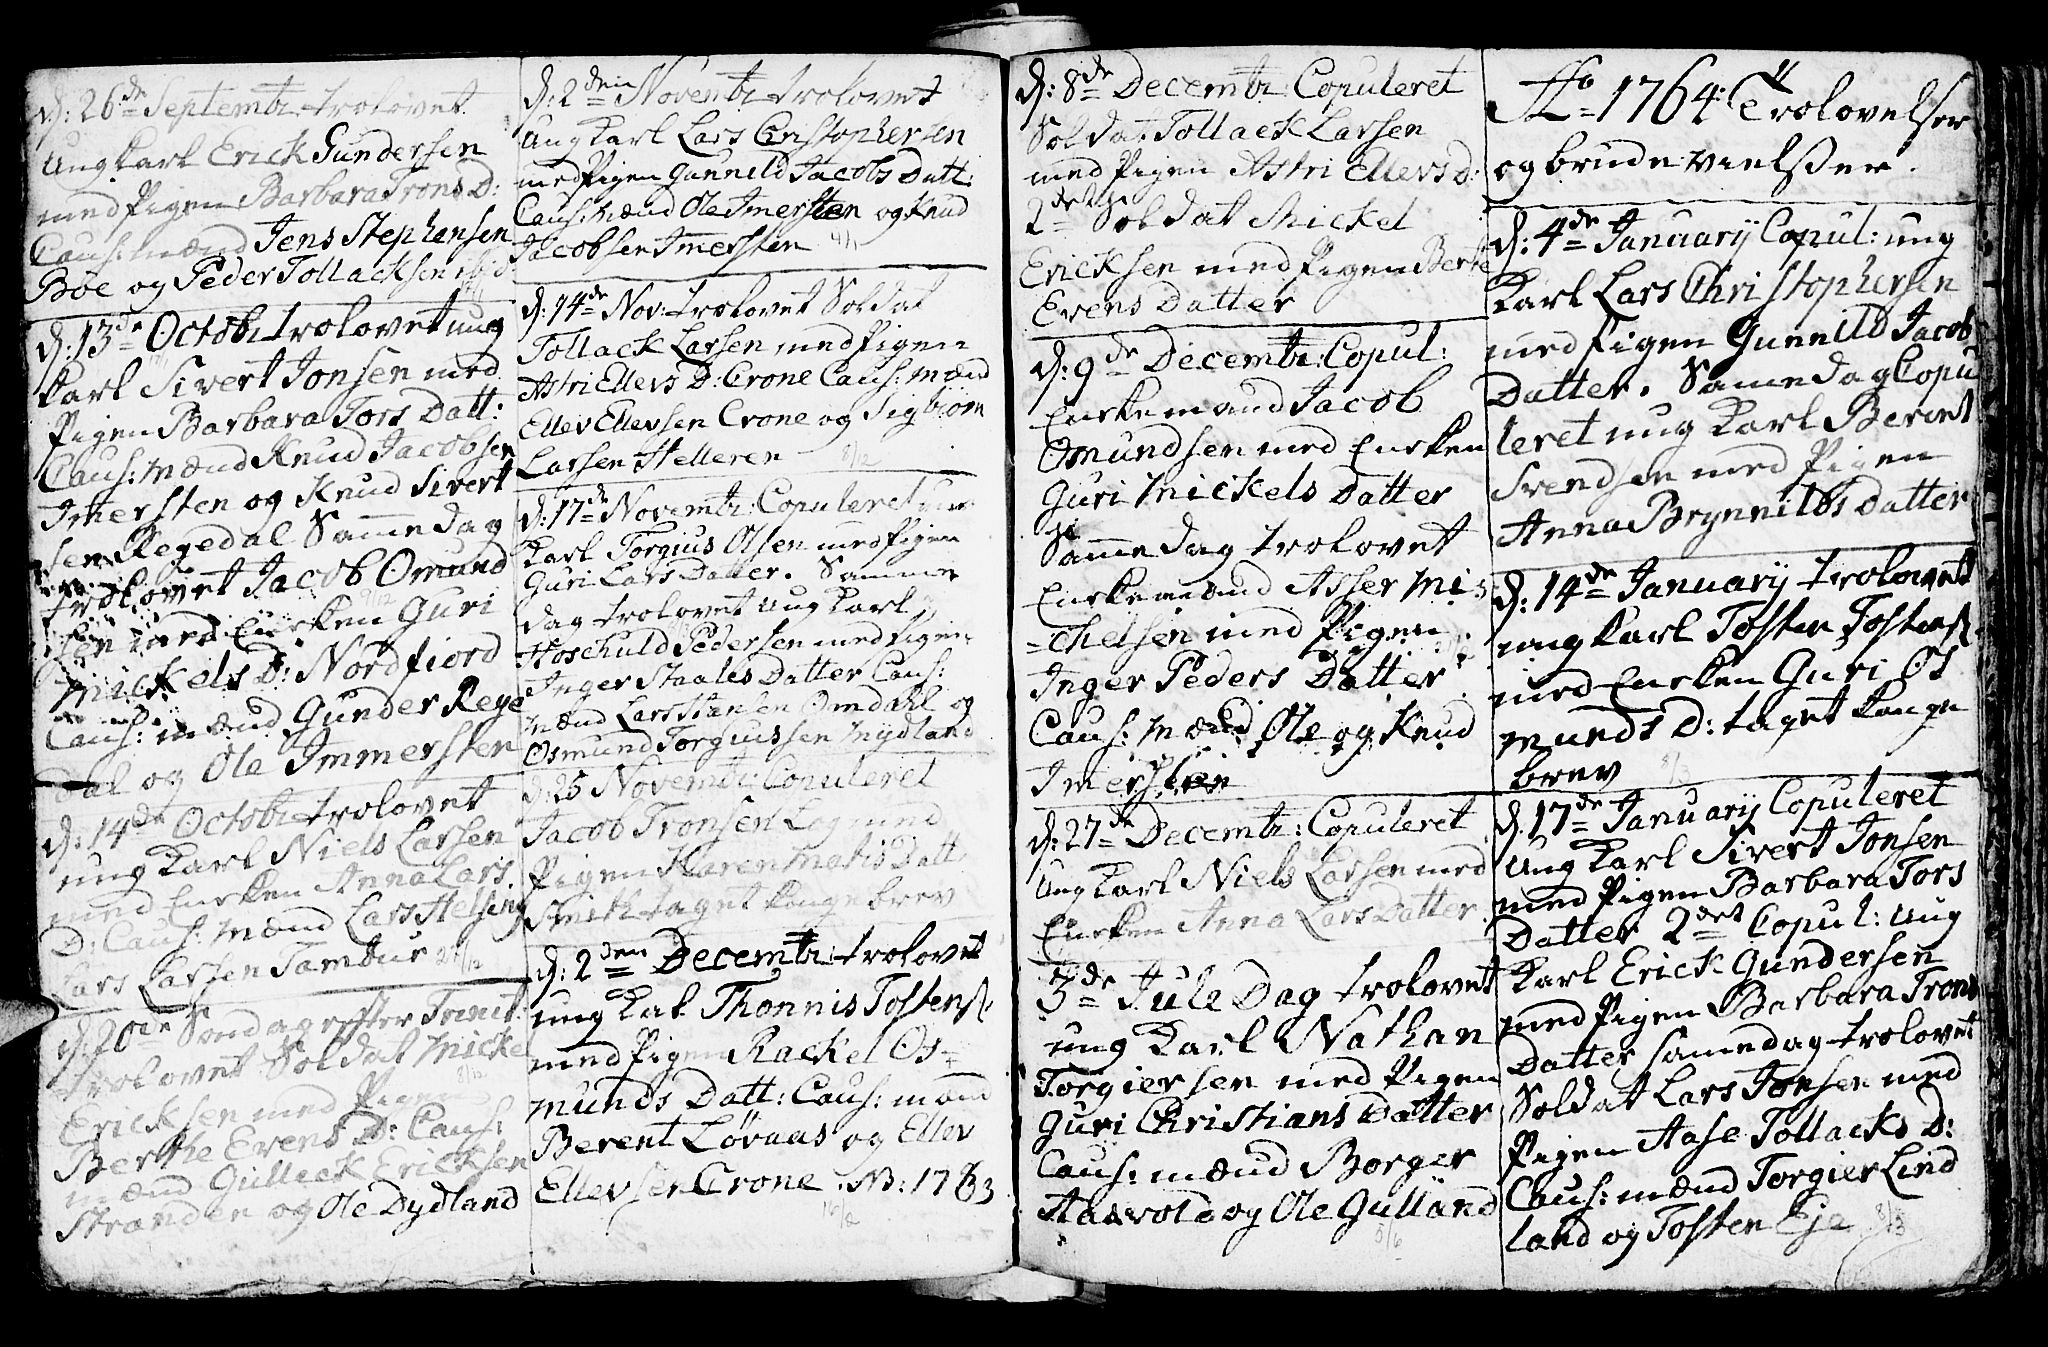 d: 26de Septembr: trolovet
Ung Karl Erick Gundersen
med Pigen Barbara Trons D:
Caus: Mænd Jens Stephensen
Bøe og Peder Tollacksen ibid:
d: 13de Octobr trolovet ung
Karl Sivert Jonsen med
Pigen Barbara Tors Datt:
Caus: Mænd Knud Jacobsen
Imersten og Knud Sivert
sen Regedal Samme dag
trolovet Jacob Omund
sen med Encken Guri
Mickels D: Nordfiord
Caus: mænd Gunder Rege
dal og Ole Immersten
d: 14de Octobr trolovet
ung Karl Niels Larsen
med Encken Anna Lars
D: Caus: Mænd Lars Helsing
Lars Larsen Tambur 27/12
d: 20de Søndag efter Trinit:
trolovet Soldat Micke
Ericksen med Pigen 8/12
Berthe Evens D: Caus:
mænd Gulleck Ericksen
Stranden og Ole Dydland
d: 2den Novembr trolovet
Ung Karl Lars Christophersen
med Pigen Gunnild Jacobs Datt:
Caus: Mænd Ole Imersten og Knud
Jacobsen Imersten 4/1
d: 14de Nov: trolovet Soldat
Tollack Larsen med Pigen
Astri Ellevs D: Crone Caus: Mænd
Ellev Ellevsen Crone og Sigbiørn
Larsen Helleren 8/12
d: 17de Novembr: Copuleret
Karl Torgius Olsen med Pigen
Guri Lars Datter. Samme
dag trolovet ung Karl
Hoschuld Pedersen med Pigen
Inger Staales Datter Caus:
Mænd Lars Hansen Omdahl og
Osmund Torgiussen Mydland
d: 25 Novembr: Copuleret
Jacob Tronsen Log med
Pigen Karen Matis Datt
Smith taget Konge brev
d: 2den Decembr: trolovet
ung Kal Thonnis Tostens:
med Pigen Rackel Os=
munds Datt: Caus: mænd
Berent Løvaas og Ellev
Ellevsen Crone NB: 1763
16/2
d: 8de Decembr: Copuleret
Soldat Tollack Larsen
med Pigen Astri Ellevs D:
2det Soldat Mickel
Ericksen med Pigen Berte
Evens Datter
d: 9de Decembr: Copul:
Enckemand Jacob
Omundsen med Encken
Guri Mickels Datter
Samme dag trolovet
Enckemand Asser Mi=
=chelsen med Pigen
Inger Peders Datter
Caus: Mænd Ole og Knud
Imersten
d: 27de Decembr: Copuleret
Ung Karl Niels Larsen med
Encken Anna Lars Datter
3de Jule Dag trolovet
ung Karl Nathan
Torgiersen med Pigen
Guri Christians Datter
Caus: mænd Borger
Haavold og Ole Gulland
5/6
Ao 1764 Trolovelser
og brude vielsser.
d: 4de Januarij Copul: ung
Karl Lars Christophersen
med Pigen Gunnild Jacob
Datter. Same dag Copu
leret ung Karl Berent
Svendsen med Pigen
Anna Brynnilds Datter
d: 14de Januarij trolovet
ung Karl Tosten Tostens:
med Encken Guri Os
munds D: taget Konge
brev 8/3
d. 17de Januarij Copuleret
Ung Karl Sivert Jonsen
med Pigen Barbara Tors
Datter 2det Copul: ung
Karl Erick Gundersen
med Pigen Barbara Trons
Datter same dag trolovet
Soldat Lars Tonsen med
Pigen Aase Tollacks D:
Caus: mænd Torgier Lind
land og Tosten Eje 8/3